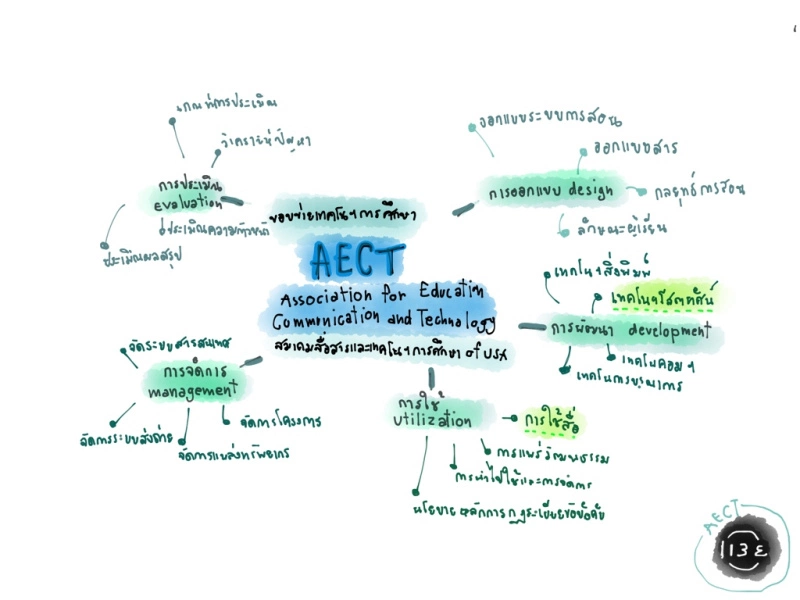 เกณฑ์การประเมิน
วิเคราะห์ปัญหา
การประเมิน
evaluation
ประเมินความก้าวหน้า
ประเมินผลสรุป
ขอบข่ายเทคโนฯการศึกษา
AECT
Association for Education
Communication and Technology
สมาคมสื่อสารและเทคโนฯการศึกษา of USA
ออกแบบระบบการสอน
ออกแบบสาร
การออกแบบ design
กลยุทธ์การสอน
ลักษณะผู้เรียน
เทคโนฯสื่อพิมพ์
เทคโนฯโสตทัศน์
การพัฒนา development
เทคโนคอมฯ
เทคโนการบูรณาการ
จัดระบบสารสนเทศ
การจัดการ
management
จัดการโครงการ
จัดการระบบส่งถ่าย
จัดการแหล่งทรัพยากร
การใช้
utilization
การใช้สื่อ
การแพร่วัฒนธรรม
การนำไปใช้และการจัดการ
นโยบาย หลักการ กฎระเบียบข้อบังคับ
AECT